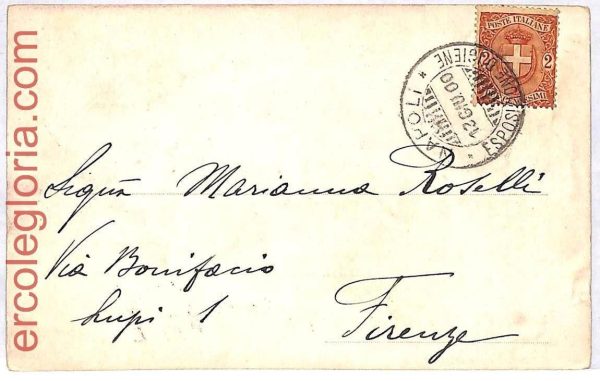 ercolegloria.com
POSTE ITALIANE
2
NAPOLI * ESPOSIZIONE D'IGIENE *
12 GIU 00
Sigña Marianna Roselli
Via Bonifacio
Lupi 1
Firenze